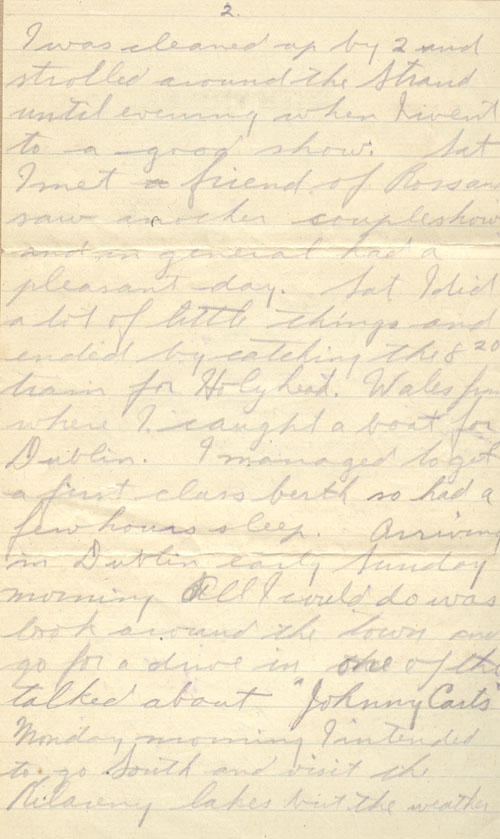 2.
I was cleaned up by 2 and
strolled around the Strand
until evening when I went
to a good show. Sat
I met a friend of Rossan
saw another couple show
and in general had a
pleasant day. Sat I did
a lot of little things and
ended by catching the 8 20
train for Holyhead. Wales from
where I caught a boat for
Dublin. I managed to get
a first class berth so had a
few hours sleep. Arriving
in Dublin early Sunday
morning all I could do was
look around the town and
go for a drive in one of the
talked about "Johnny Carts
Monday morning I intended
to go South and visit the
Kilareny lakes but the weather